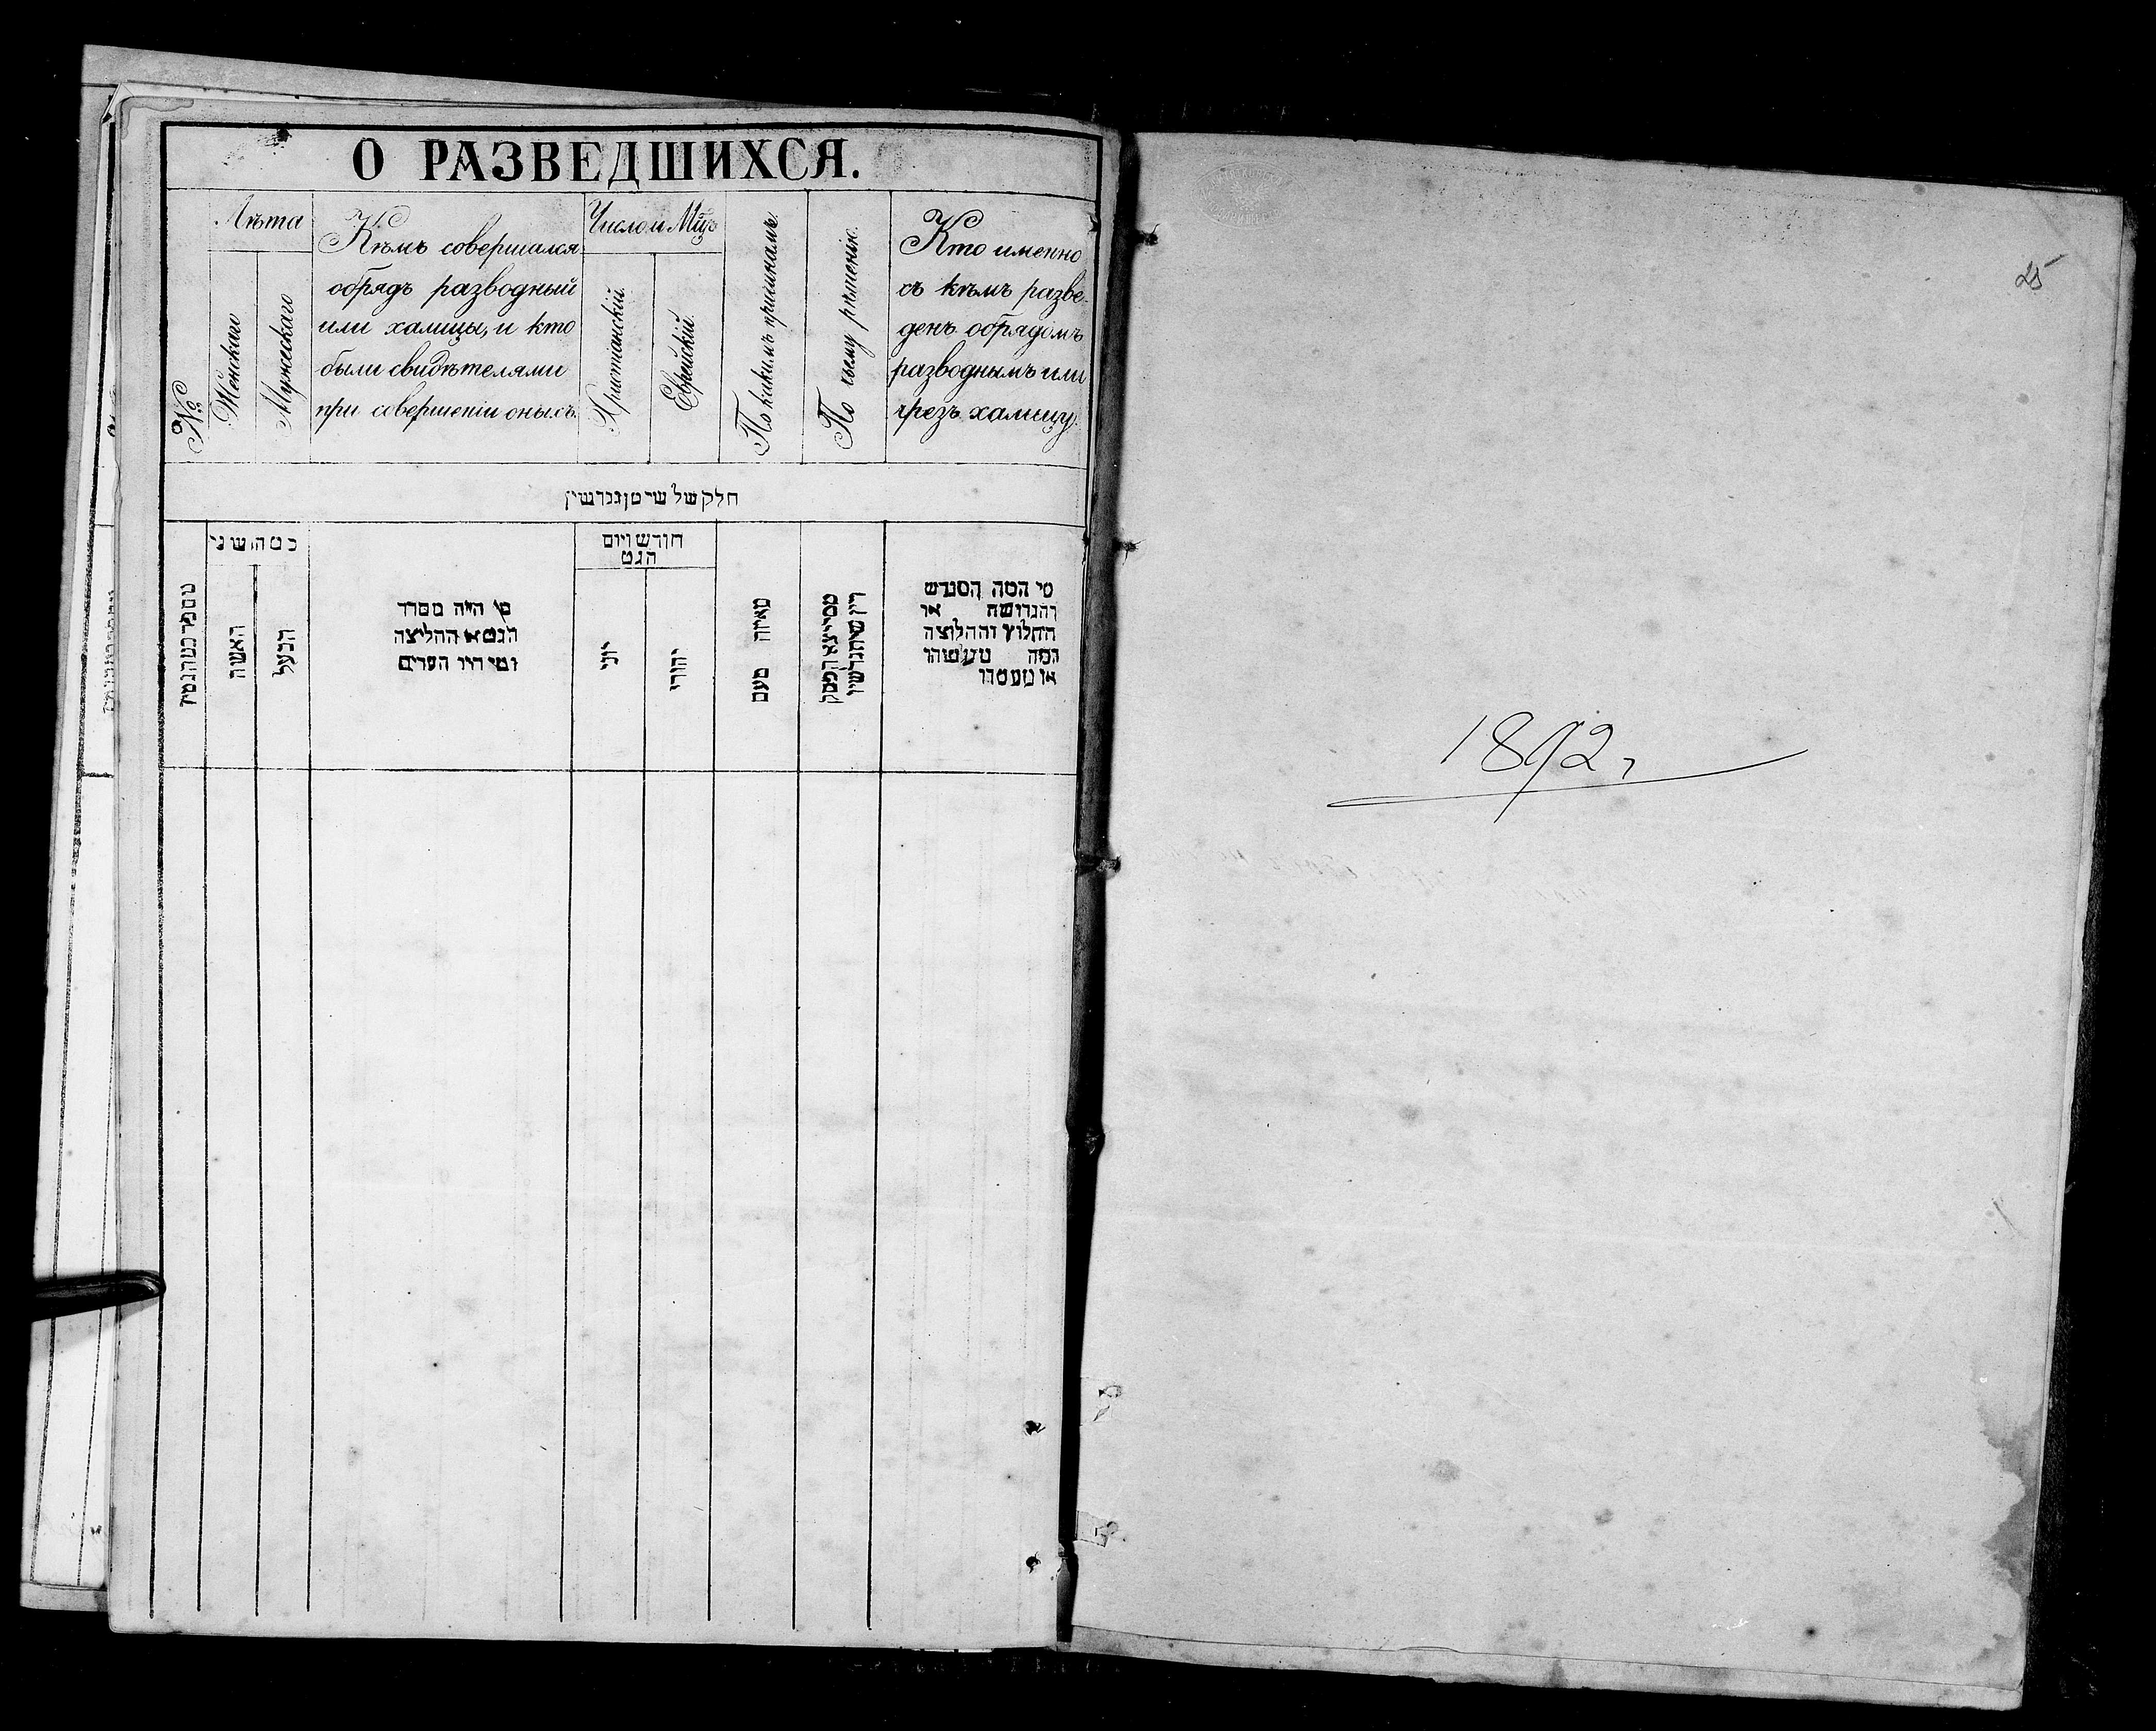 О РАЗВЕДШИХСЯ.
№
Лѣта
Женскаго
Мужескаго
Кѣмъ совершался
обрядъ разводный
или халицы, и кто
были свидѣтелями
при совершеніи оныхъ.
Число и Мцъ
Христіанскій.
Еврейскій.
По какимъ причинамъ.
По чьему рѣшенію.
Кто именно
съ кѣмъ разве-
денъ обрядомъ
разводнымъ или
чрезъ халицу.
חלק של
כמה שני
האשה
הבעל
מי היה מסדר
הגט או החליצה
ומי היו העדים
חודש ויום
הגט
יוני
יהודי
מאיזה טעם
מי המה המגרש
והגרושה או
החלוץ והחלוצה
25
1892 г